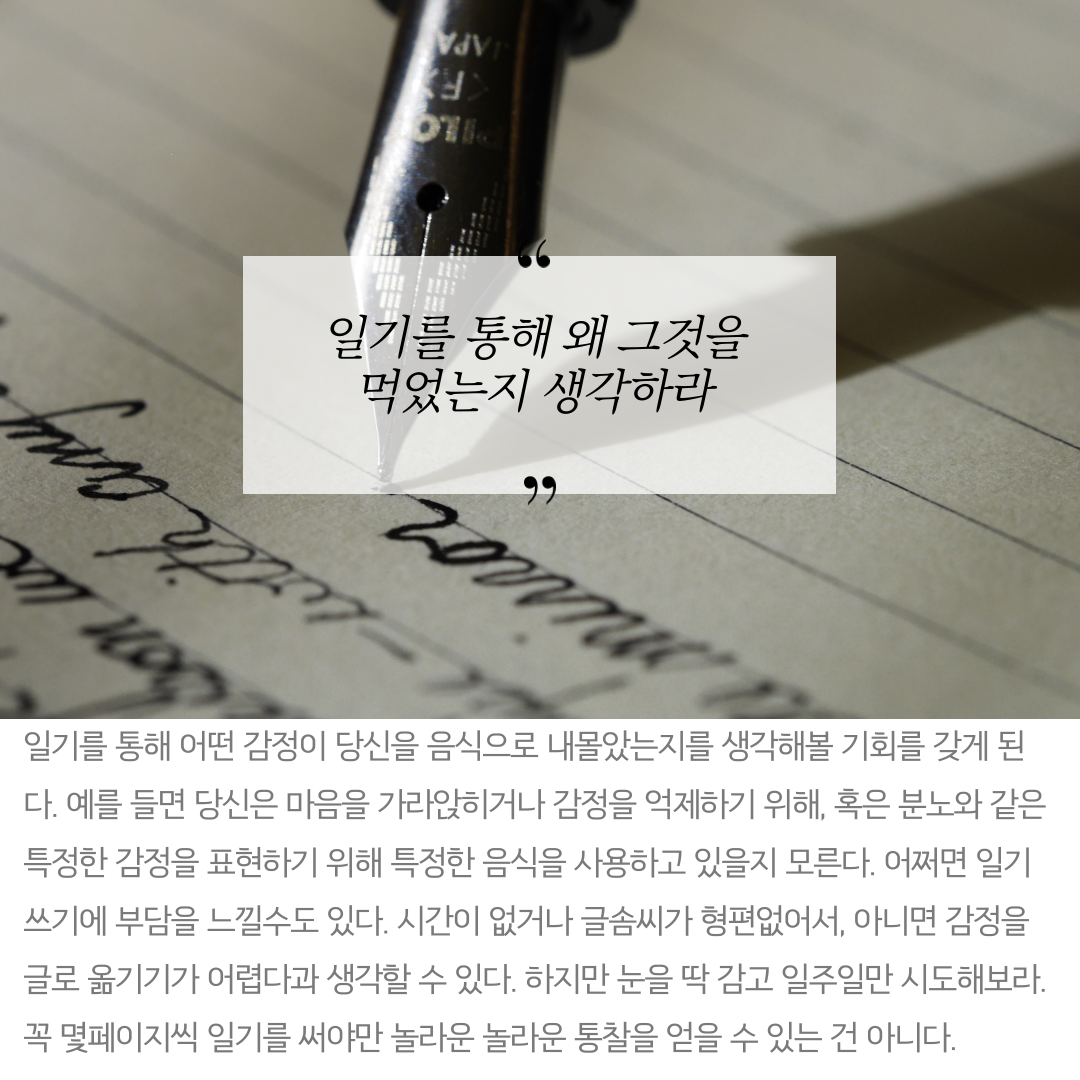 JAPA
<F>
PILO
“
일기를 통해 왜 그것을
먹었는지 생각하라
”
any
with
a union
일기를 통해 어떤 감정이 당신을 음식으로 내몰았는지를 생각해볼 기회를 갖게 된
다. 예를 들면 당신은 마음을 가라앉히거나 감정을 억제하기 위해, 혹은 분노와 같은
특정한 감정을 표현하기 위해 특정한 음식을 사용하고 있을지 모른다. 어쩌면 일기
쓰기에 부담을 느낄수도 있다. 시간이 없거나 글솜씨가 형편없어서, 아니면 감정을
글로 옮기기가 어렵다과 생각할 수 있다. 하지만 눈을 딱 감고 일주일만 시도해보라.
꼭 몇페이지씩 일기를 써야만 놀라운 놀라운 통찰을 얻을 수 있는 건 아니다.